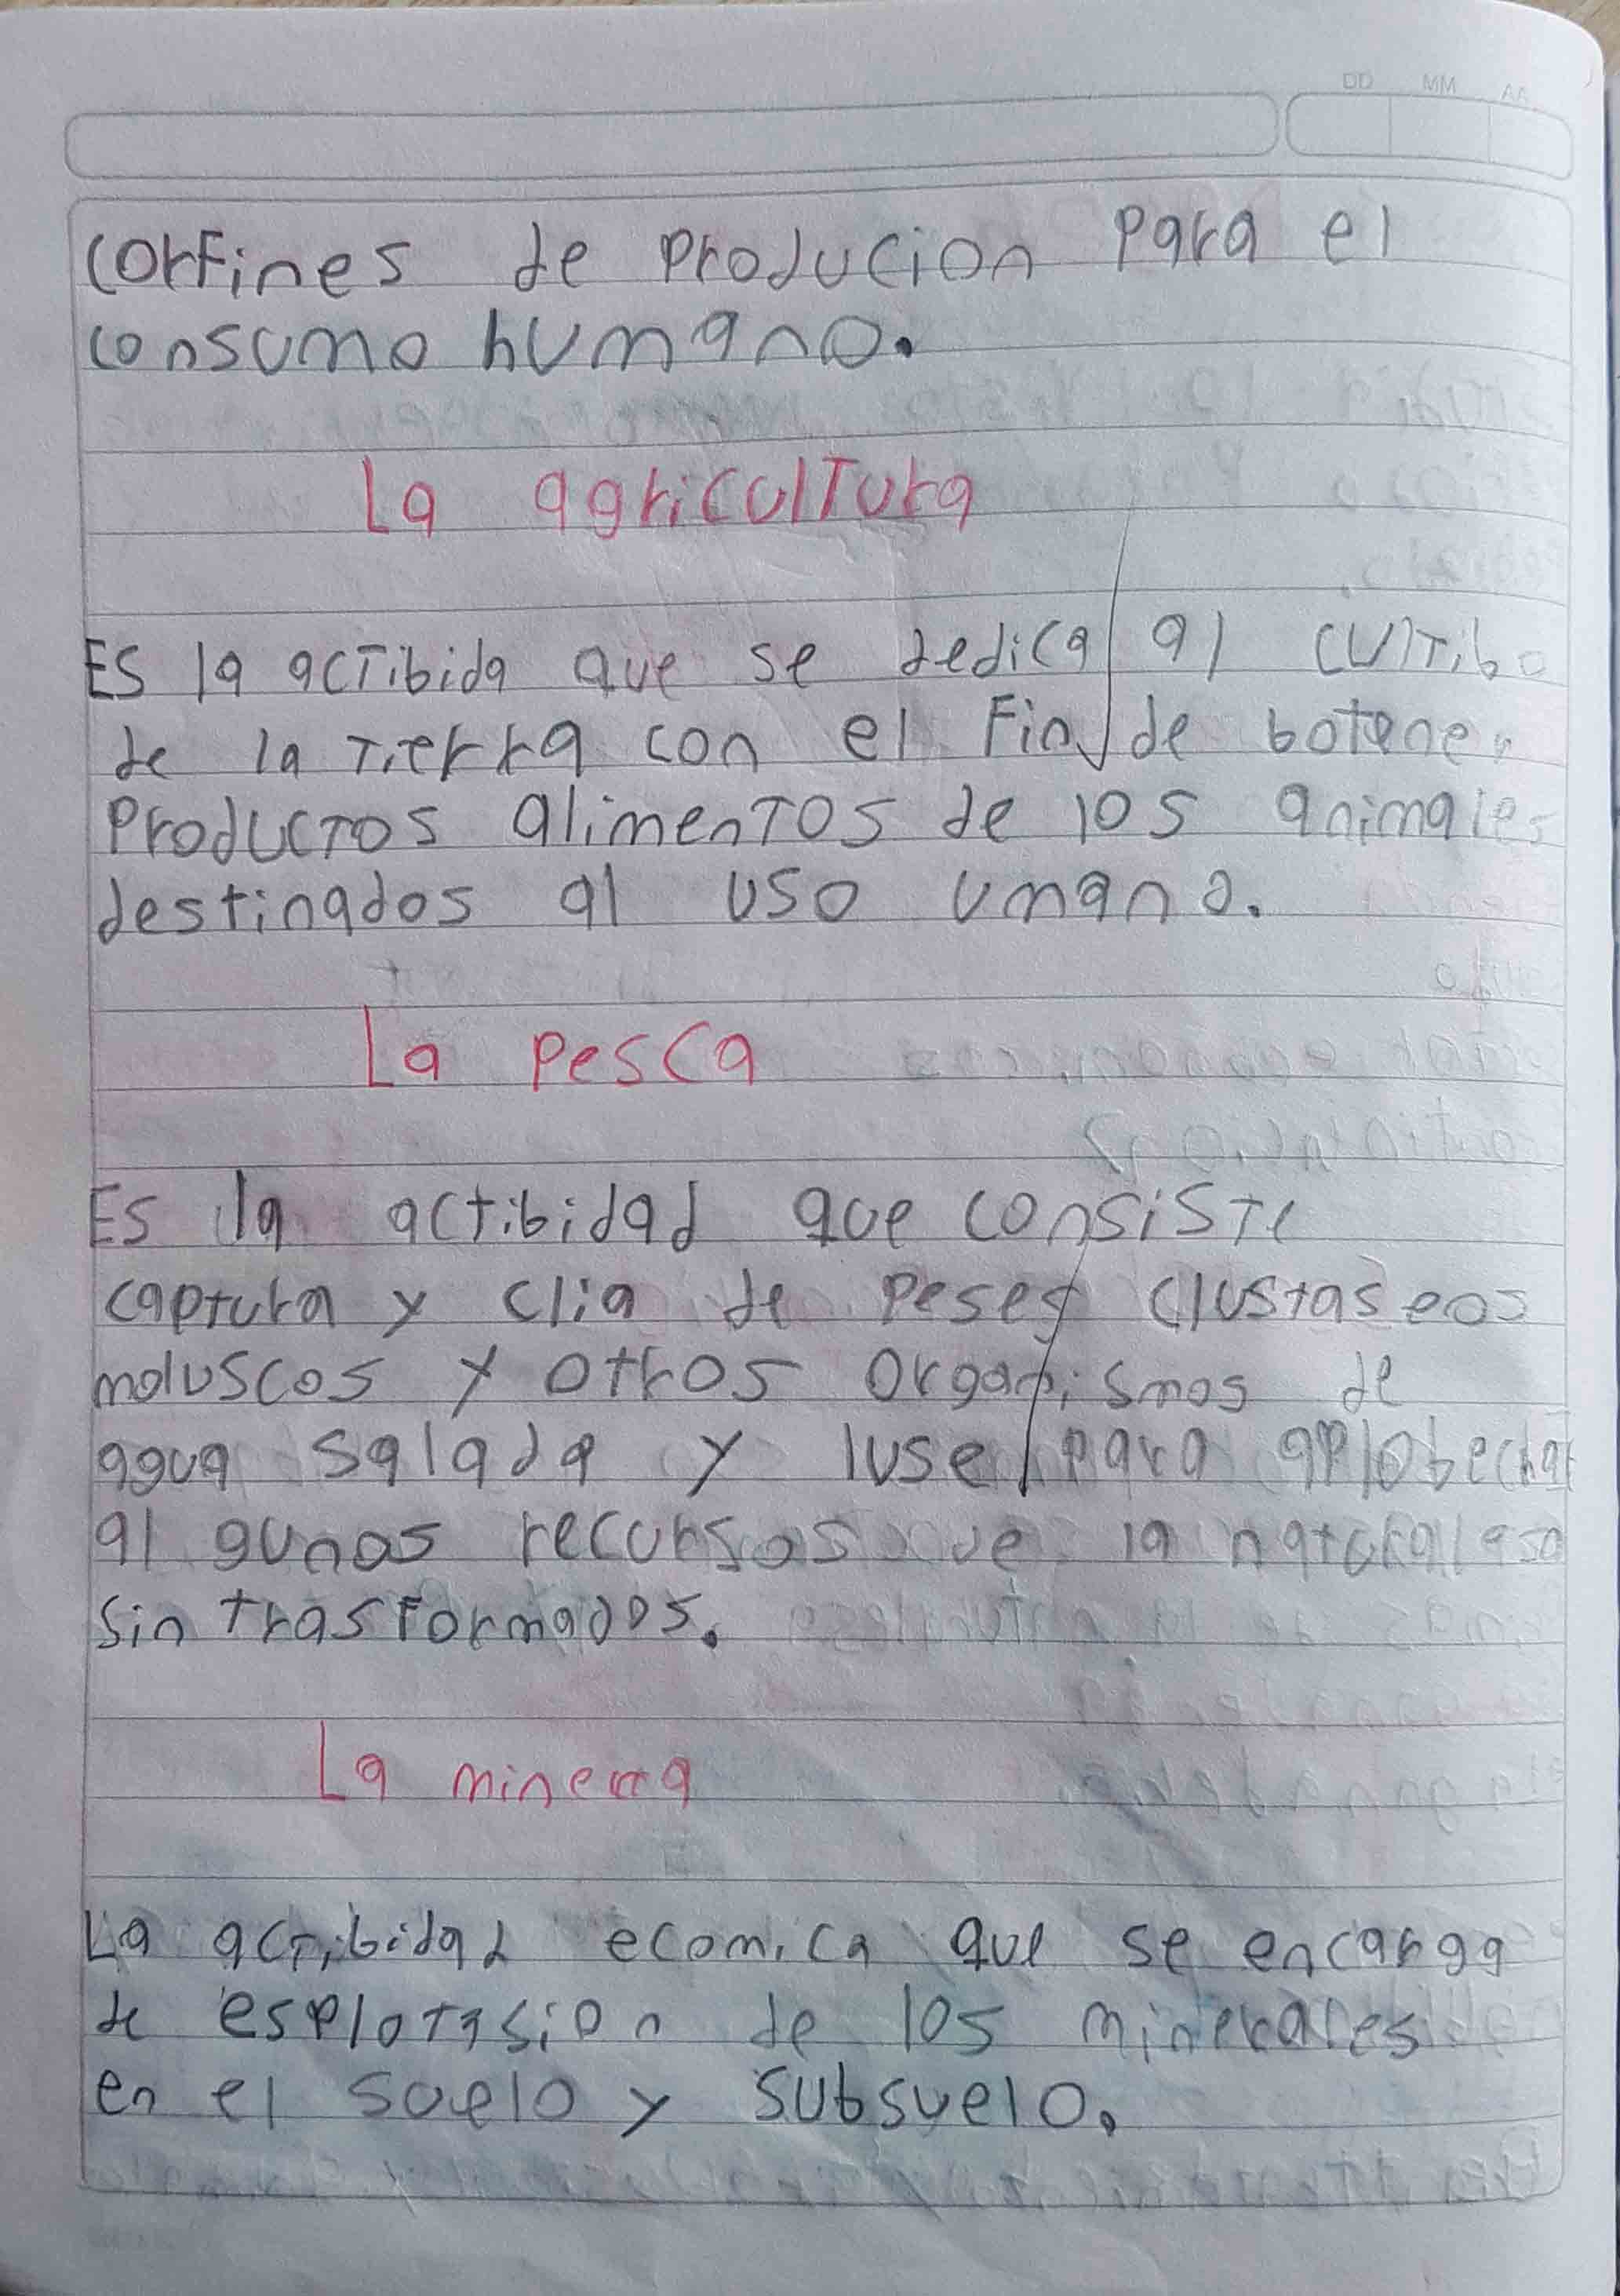 corfines de producion para el
consumo humano.
La agricultura
Es la actibida que se dedica al cultibo
de la tierra con el fin de botener
productos alimentos de los animales
destinados al uso umano.
La pesca
Es la actibidad que consiste
captura y clia de peses clustaseos
moluscos y otros organismos de
agua salada y luse para aplobechar
al gunos recursos de la naturalesa
sin trasformados.
La minerra
La actibidad ecomica que se encarga
de esplotasion de los minerales
en el suelo y subsuelo.